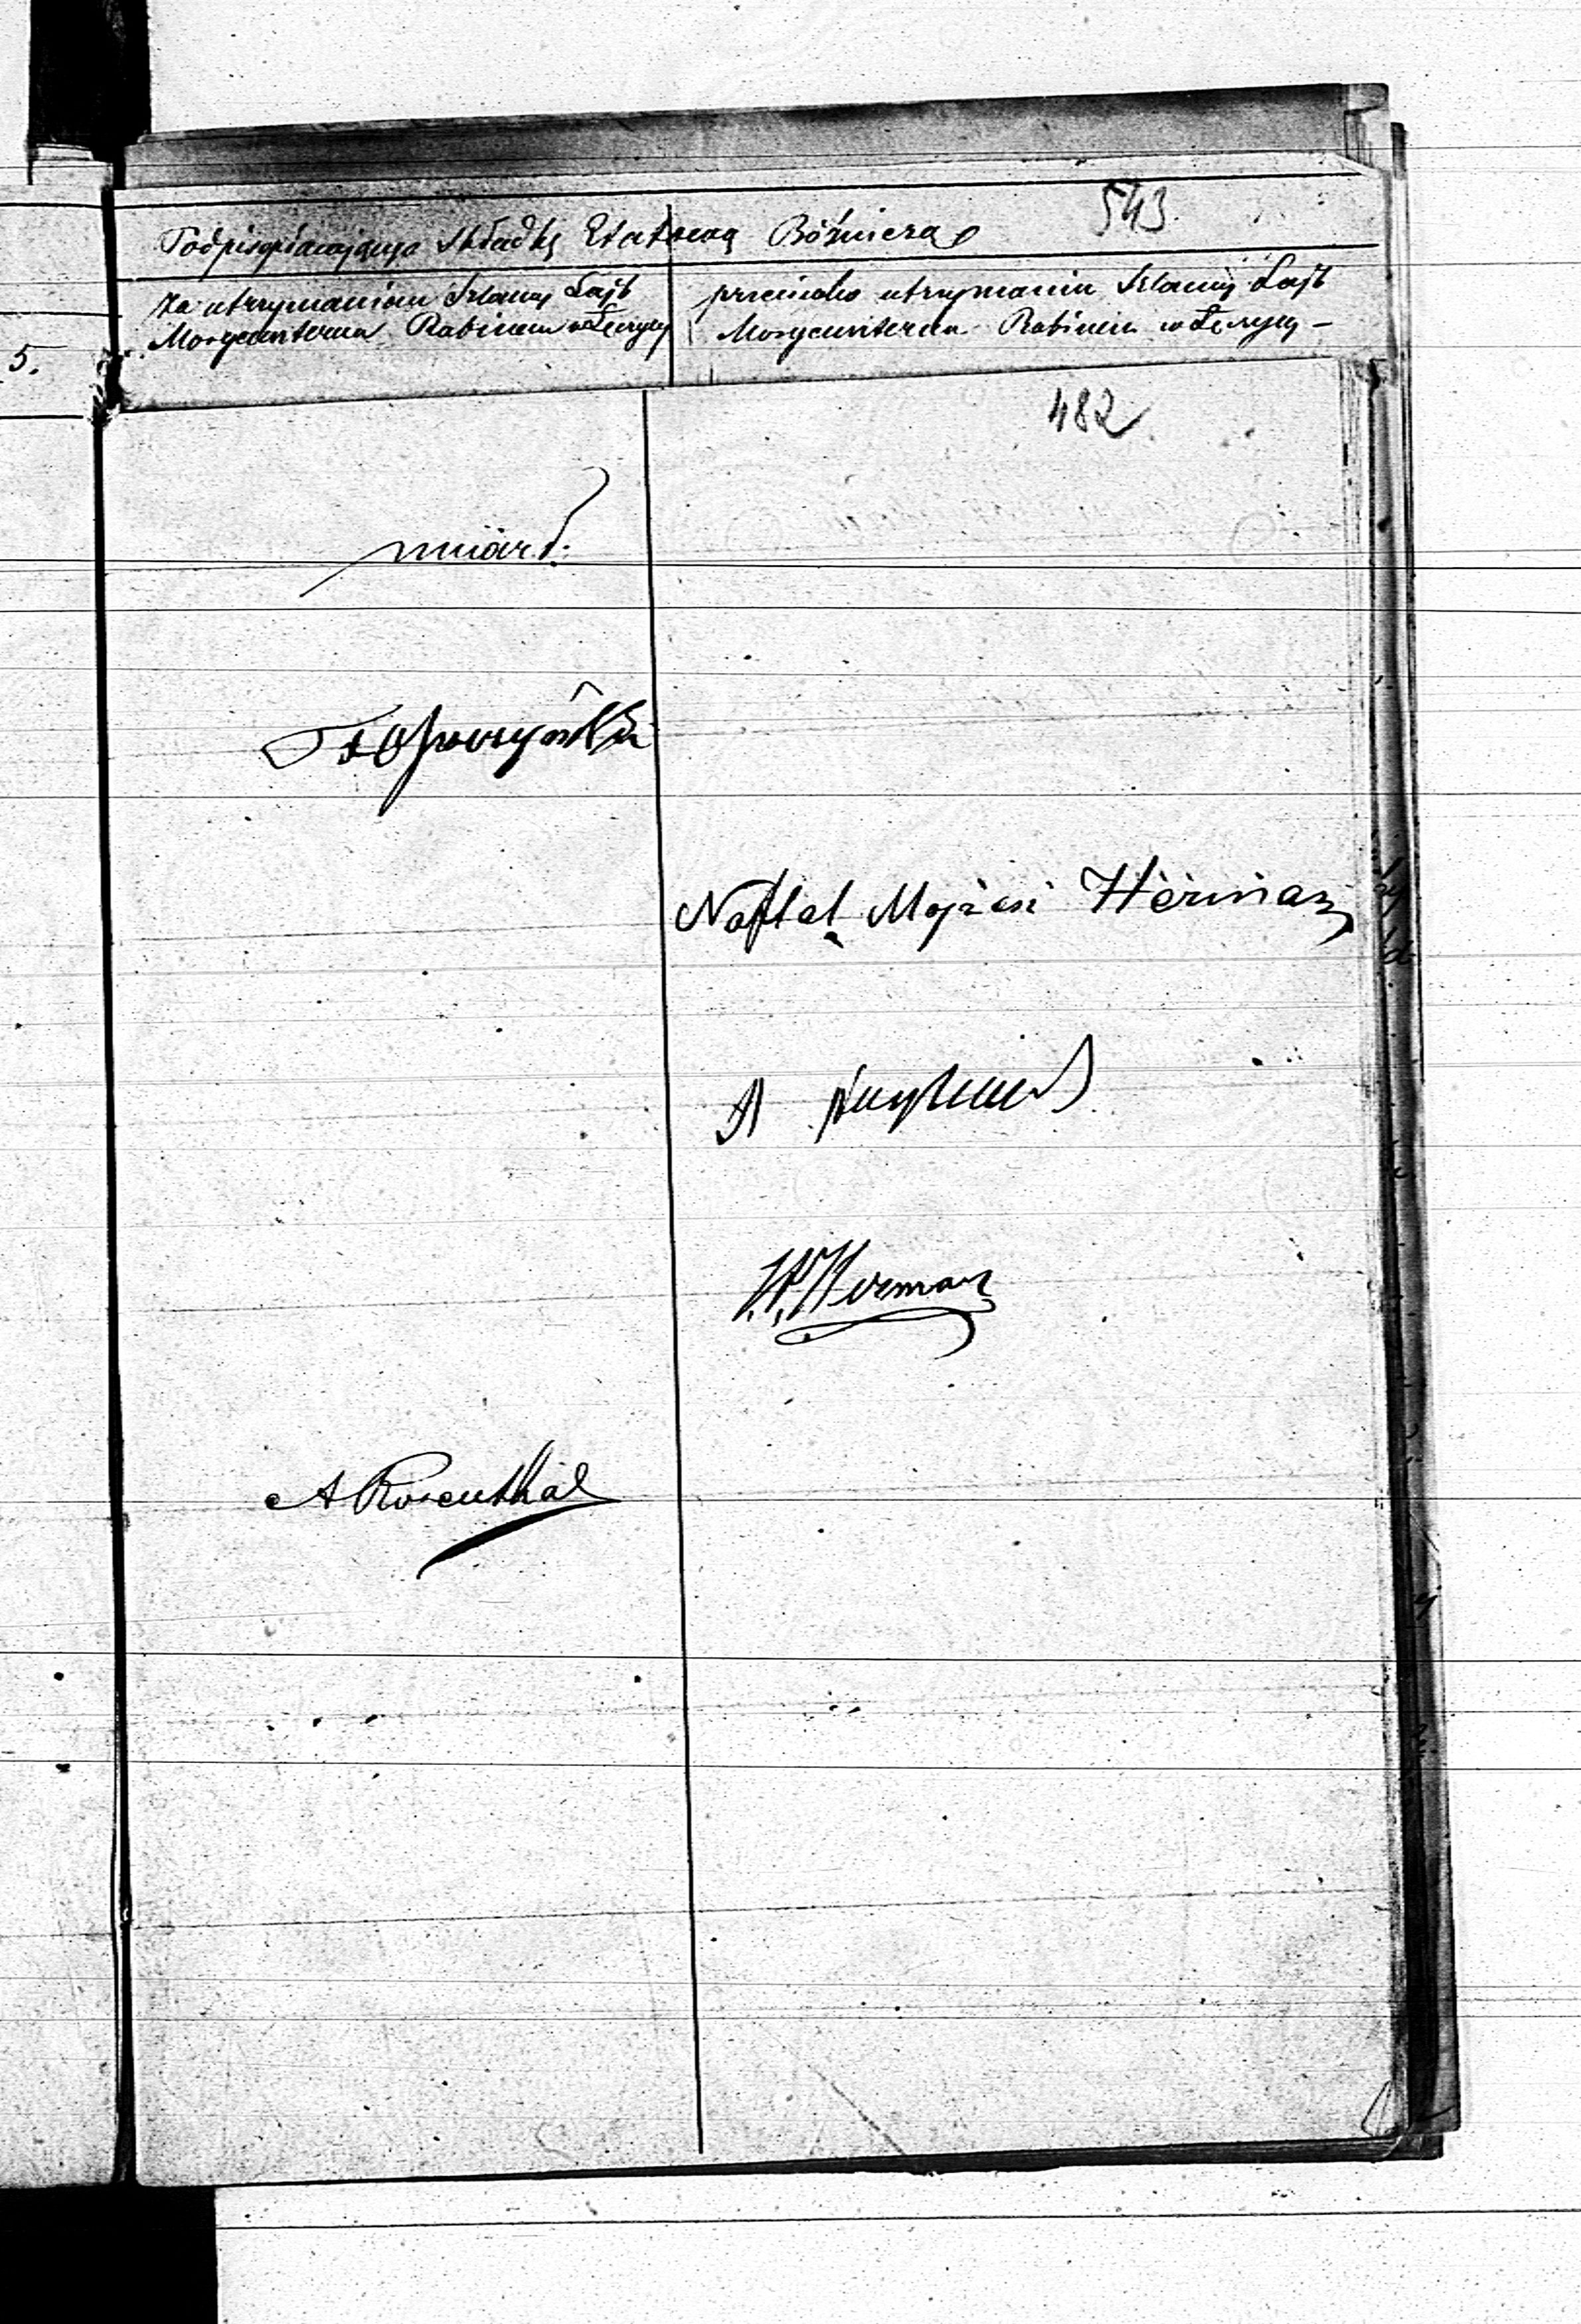 543.
Podpis opłacającego Składkę Etatową Bóżniczą
za utrzymaniem Szlamy Lajb
Morgensterna Rabinem w Łęczycy
przeciwko utrzymaniu Szlamy Lajb
Morgensterna Rabinem w Łęczycy –
5.
482
umiarł.
Naftal Mojżesz Herman
A
H. Herman
A Rosenthal